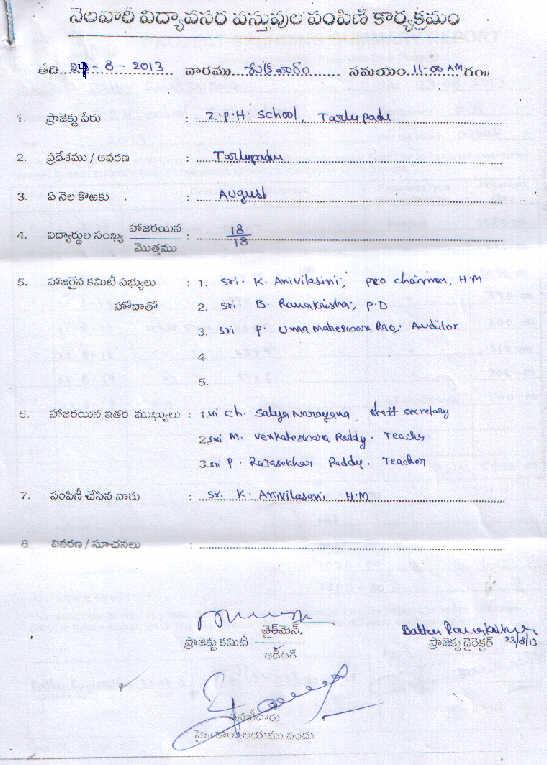 నెలవారీ విద్యావసర వస్తువుల పంపిణీ కార్యక్రమం
తేది - 8 - 2013 వారము సమయం. 11-00 AM గం॥
1. ప్రాజెక్టు పేరు : Z.P.H. School, Tarlupadu
2. ప్రదేశము / ఆవరణ : Tarlupadu
3. ఏ నెల కొఱకు : August
4. విద్యార్థుల సంఖ్య హాజరయిన / మొత్తము : 18/18
5. హాజరైన కమిటీ సభ్యులు : 1. Sri. K. Anivilasini, Pro chairman, H.M
హోదాతో 2. Sri B. Ramakrishna, P.D
3. Sri P. Uma maheswara Rao. Auditor
4.
5.
6. హాజరయిన ఇతర ముఖ్యులు : 1. Sri Ch. Satya Narayana, Staff secretary
2. Sri M. Venkateswara Reddy. Teacher
3. Sri P. Rajasekhar Reddy. Teacher
7. పంపిణీ చేసిన వారు : Sri. K. Anivilasini H.M
8. వివరణ / సూచనలు :
చైర్‌మెన్.
ప్రాజెక్టు కమిటీ
ఆడిటర్
ప్రాజెక్టు డైరెక్టర్